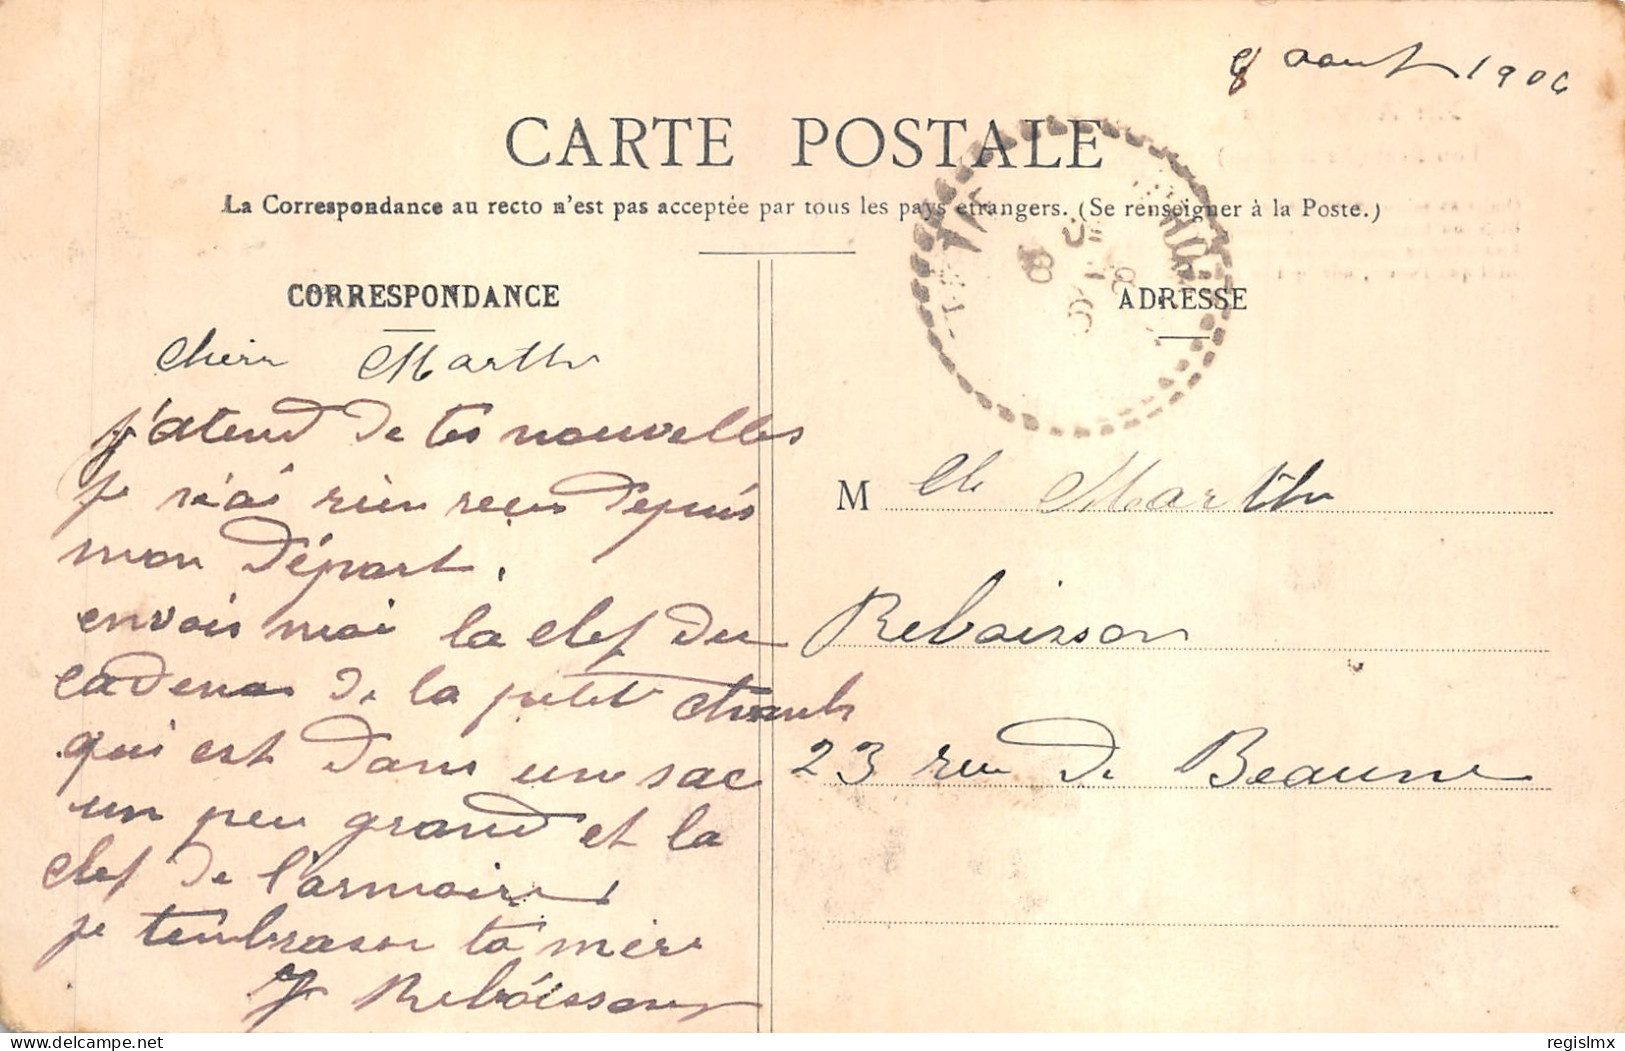 8 aout 1906
CARTE POSTALE
La Correspondance au recto n'est pas acceptée par tous les pays étrangers. (Se renseigner à la Poste.)
CORRESPONDANCE
cherr Marthe
j'atend de tes nouvelles
je n'ai rien reçu depuis
mon départ.
envois moi la clef du
cadenas de la petit chamb
qui est dans un sac
un peu grand et la
clef de l'armoire
je tembrasse ta mère
J Reboisson
ADRESSE
M elle Marthe
Reboisson
23 rue de Beaune
delcampe.net
regislmx